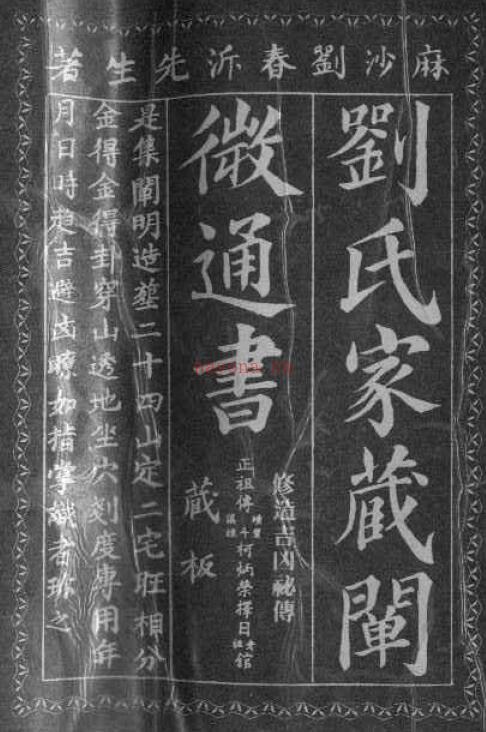 麻沙劉春沂先生著
劉氏家蔵闡
微通書
修造吉凶祕傳
正祖傳
斗柯炳榮擇日館
蔵板
是集闡明造塟二十四山定二宅旺相分
金得金得卦穿山透地坐穴刻度專用年
月日時趋吉避凶曠如指掌識者珍之